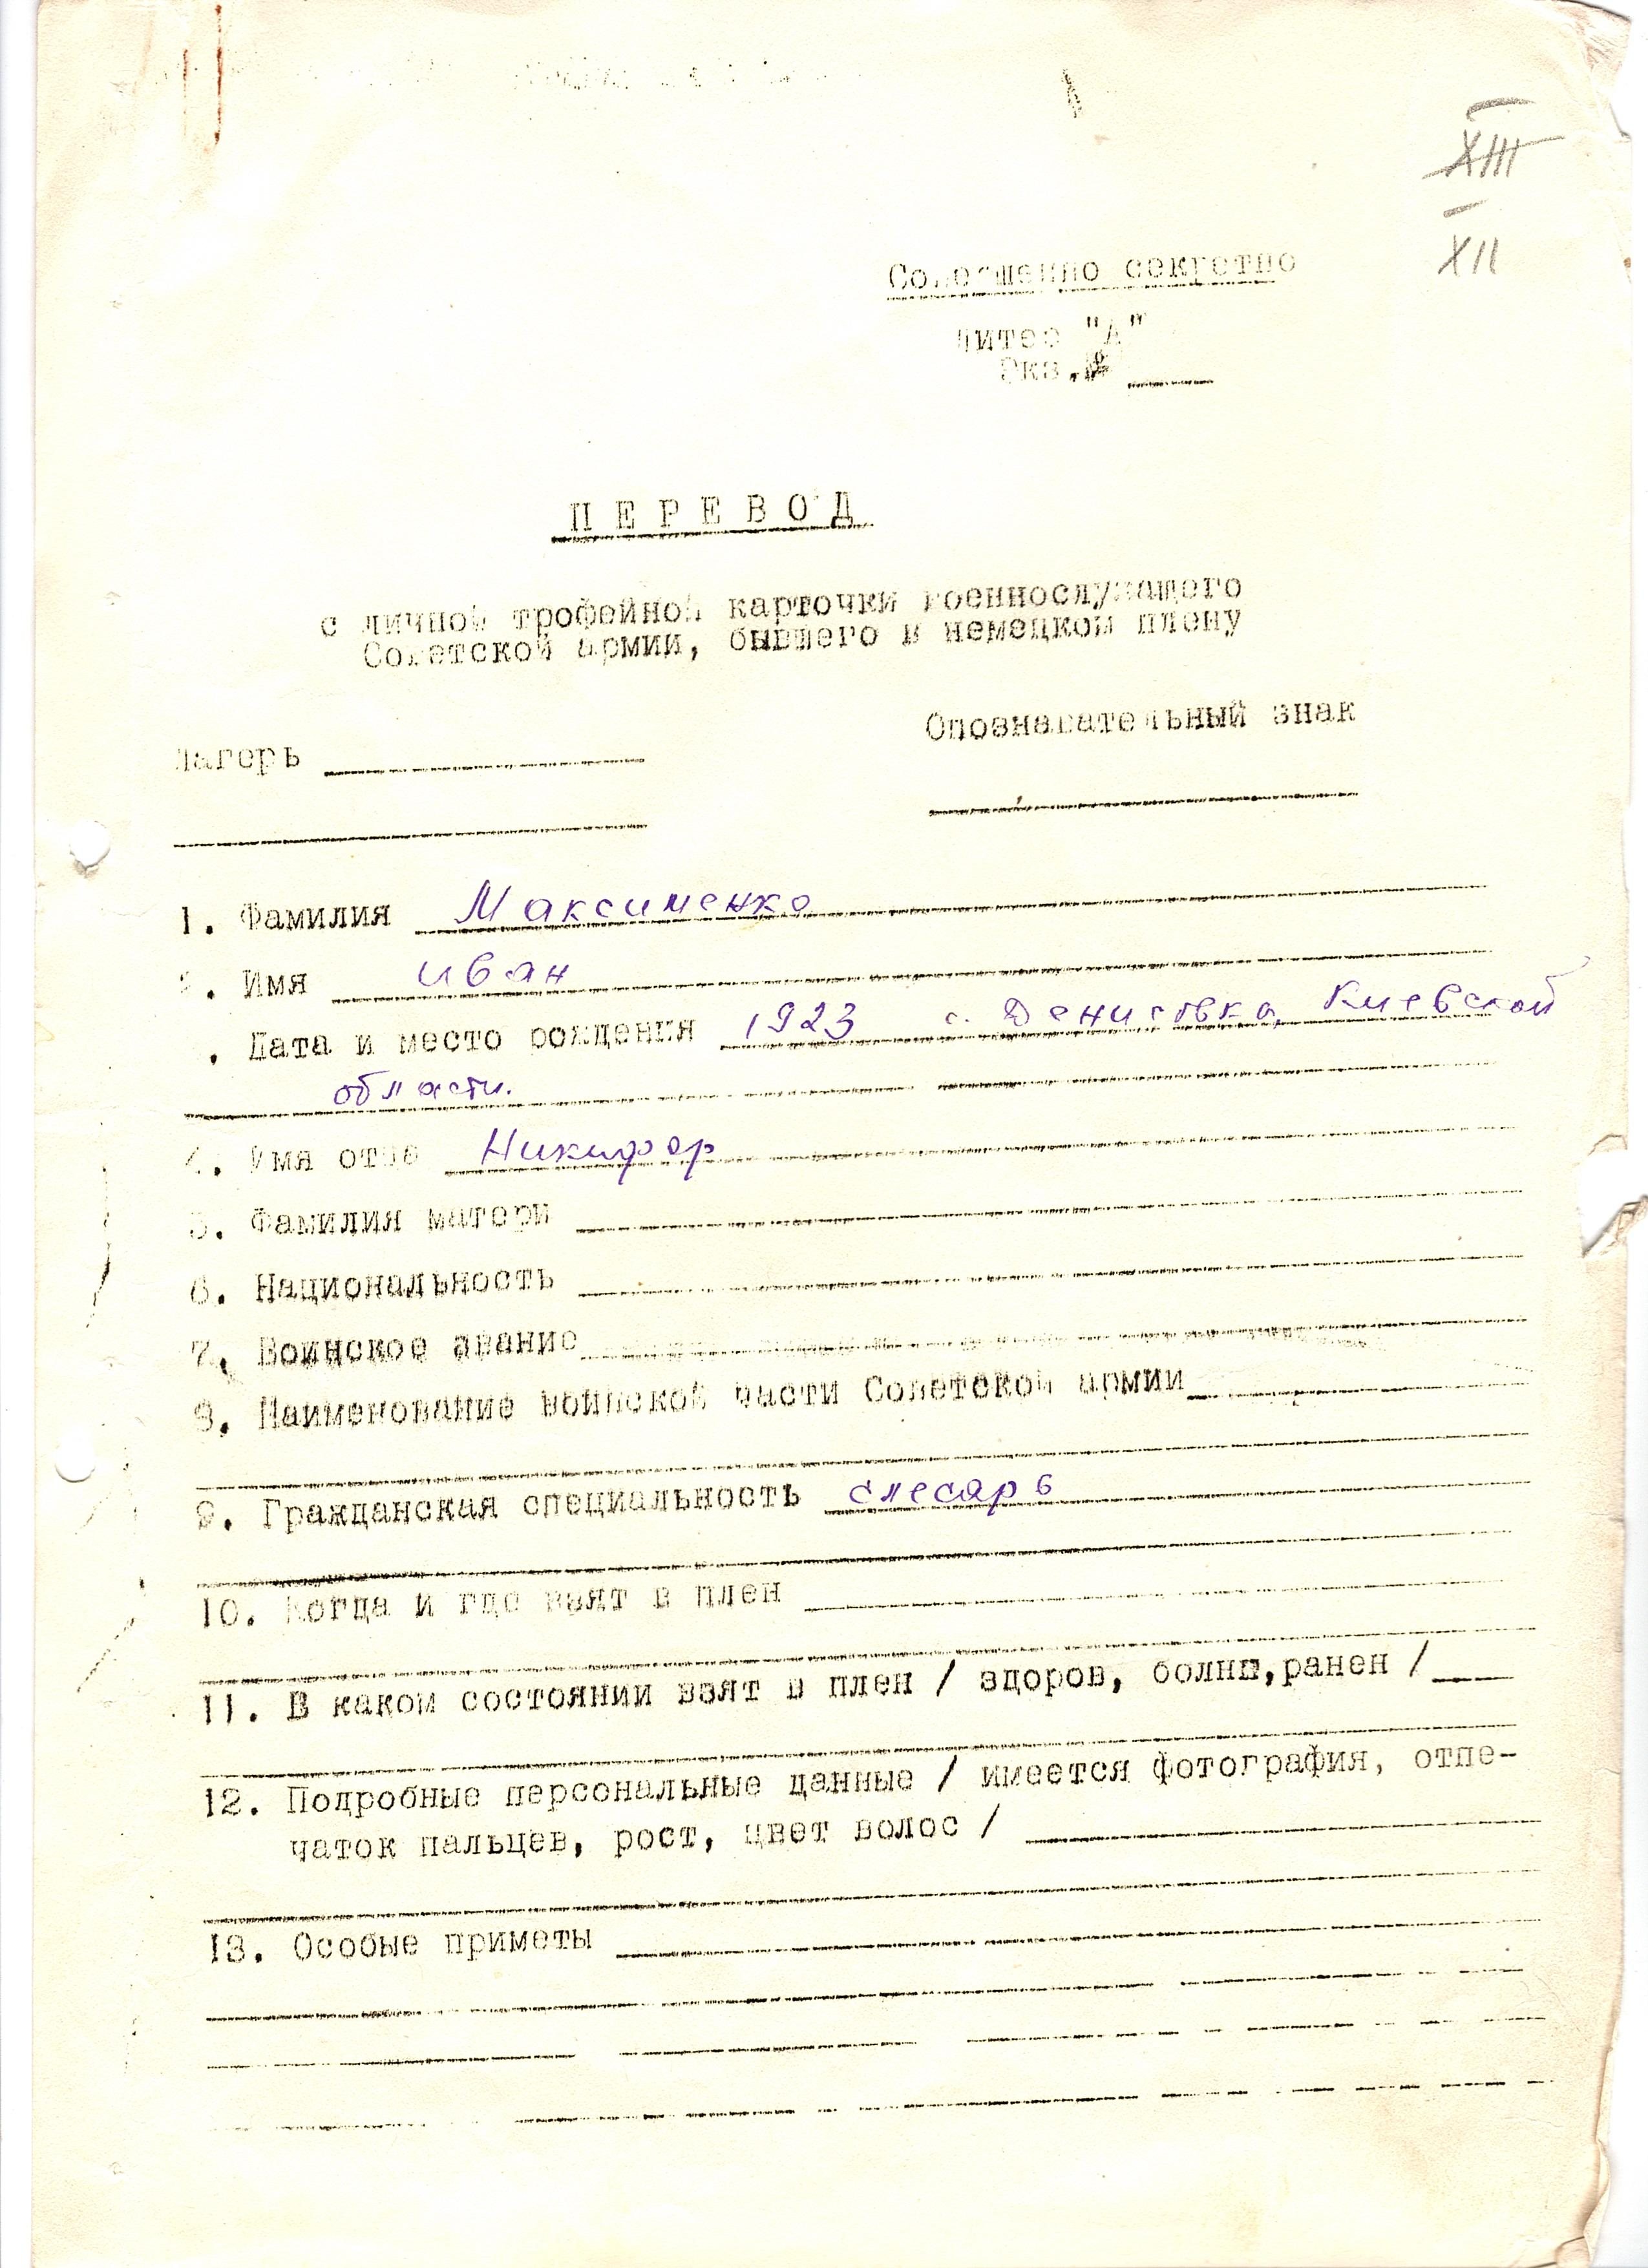 XIII
XII
Совершенно секретно
Литер "А"
Экз.№
ПЕРЕВОД
с личной трофейной карточки военнослужащего
Советской армии, бывшего в немецком плену
Опознавательный знак
Лагерь
1. Фамилия Максименко
2. Имя иван
. Дата и место рождения 1923 с. Денисовка, Киевской
области.
4. Имя отца Никифор
5. Фамилия матери
6. Национальность
7. Воинское звание
8. Наименование воинской части Советской армии
9. Гражданская специальность слесарь
10. Когда и где взят в плен
11. В каком состоянии взят в плен / здоров, ранен /
12. Подробные персональные данные / имеется фотография, отпе-
чаток пальцев, рост, цвет волос /
13. Особые приметы